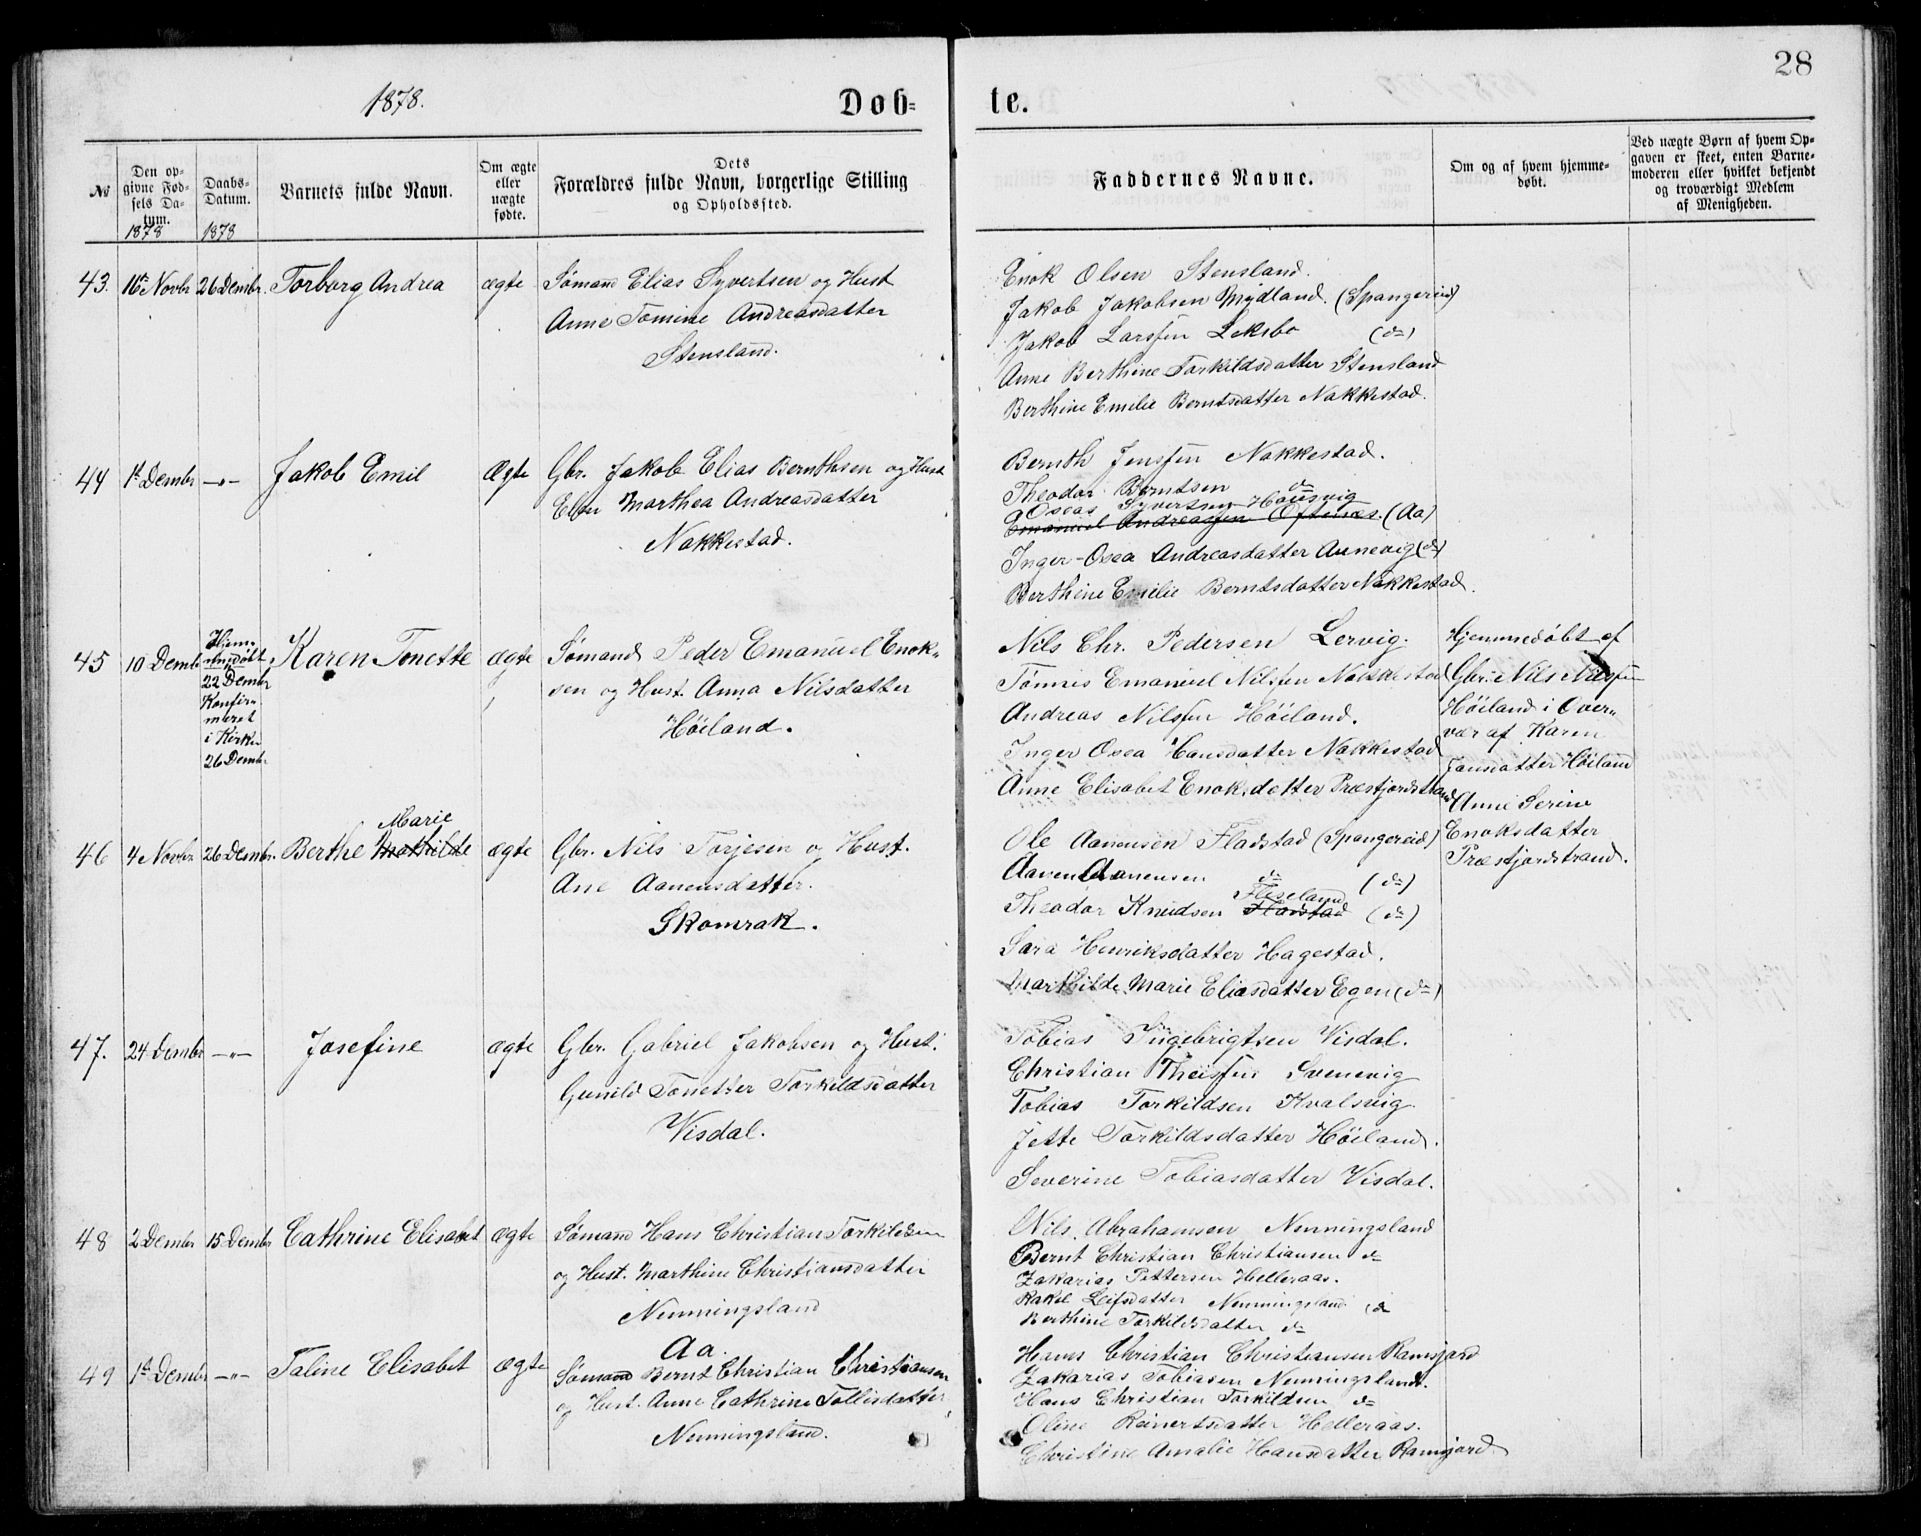 28
1878.
Döb-
te.
No
Den op-
givne Fød-
sels Da-
tum.
1878
Daabs-
Datum.
1878
Barnets fulde Navn.
Om ægte
eller
uægte
fødte.
Dets
Forældres fulde Navn, borgerlige Stilling
og Opholdssted.
Faddernes Navne.
Om og af hvem hjemme-
døbt.
Ved uægte Børn af hvem Op-
gaven er skeet, enten Barne-
moderen eller hvilket bekjendt
og troværdigt Medlem
af Menigheden.
43. 16de Novbr 26 Dembr. Torborg Andrea ægte
Sømand Elias Syvertsen og Hust
Anne Tomine Andreasdatter
Stensland.
Enok Olsen Stensland.
Jakob Jakobsen Mydland. (Spangereid)
Jakob Larssen Leksbo (do)
Anne Berthine Torkildsdatter Stensland
Berthine Emilie Berntsdatter Nakkestad.
44 1st Dembr -"- Jakob Emil Ægte
Gbr. Jakob Elias Bernthsen og Hust
Elen Marthea Andreasdatter
Nakkestad.
Bernth Jenssen Nakkestad.
Theodor Berntsen do
Oseas Syvertsen Housvig
Emanuel Andreassen Oftenæs. (Aa)
Inger-Osea Andreasdatter Aunevig (do)
Berthine Emilie Berntsdatter Nakkestad.
45 10 Dembr
Hjem-
medøbt
22 Dembr
Konfir-
meret
i Kirken
26 Dembr
Karen Tonette ægte
Sømand Peder Emanuel Enok-
sen og Hust. Anna Nilsdatter
Höiland.
Nils Chr. Pedersen Lervig.
Tönnes Emanuel Nilssen Nakkestad
Andreas Nilssen Höiland.
Inger Osea Hansdatter Nakkestad
Anne Elisabet Enoksdatter Præstfjordstrand
Hjemmedöbt af
Gbr. Nils Nilssen
Höiland i Over-
vær af Karen
Jansdatter Höiland
Anne Serine
Enoksdatter
Præstfjordstrand.
46 4 Novbr 26 Dembr. Berthe Mathilde ægte
Marie
Gbr. Nils Torjesen og Hust.
Ane Aanensdatter.
Skomrak.
Ole Aanensen Fladstad (Spangereid)
Aanen Aanensen do (do)
Fliseland
Theodor Knudsen Fladstad (do)
Sara Henriksdatter Hagestad.
Marthilde Marie Eliasdatter Egen (do)
47. 24 Dembr -"- Josefine ægte
Gbr. Gabriel Jakobsen og Hust.
Gunild Tonette Torkildsdatter
Visdal.
Tobias Ingebrigtsen Visdal.
Christian Theissen Svenevig
Tobias Torkildsen Kvalsvig.
Jette Torkildsdatter Höiland.
Severine Tobiasdatter Visdal.
48 2 Dembr 15 Dembr Cathrine Elisabet ægte
Sømand Hans Christian Torkildsen
og Hust. Marthine Christiansdatter
Nenningsland
Nils Abrahamsen Nenningsland
Bernt Christian Christiansen do
Zakarias Pettersen Helleraas.
Rakel Leifsdatter Nenningsland
Berthine Torkildsdatter do
49 1st Dembr -"- Taline Elisabet ægte
Aa.
Sømand Bernt Christian Christiansen
og Hust. Anne Cathrine Tollisdatter
Nenningsland.
Hans Christian Christiansen Ramsjord
Zakarias Tobiasen Nenningsland.
Hans Christian Torkildsen do
Oline Reinertsdatter Helleraas.
Christine Amalie Hansdatter Ramsjord